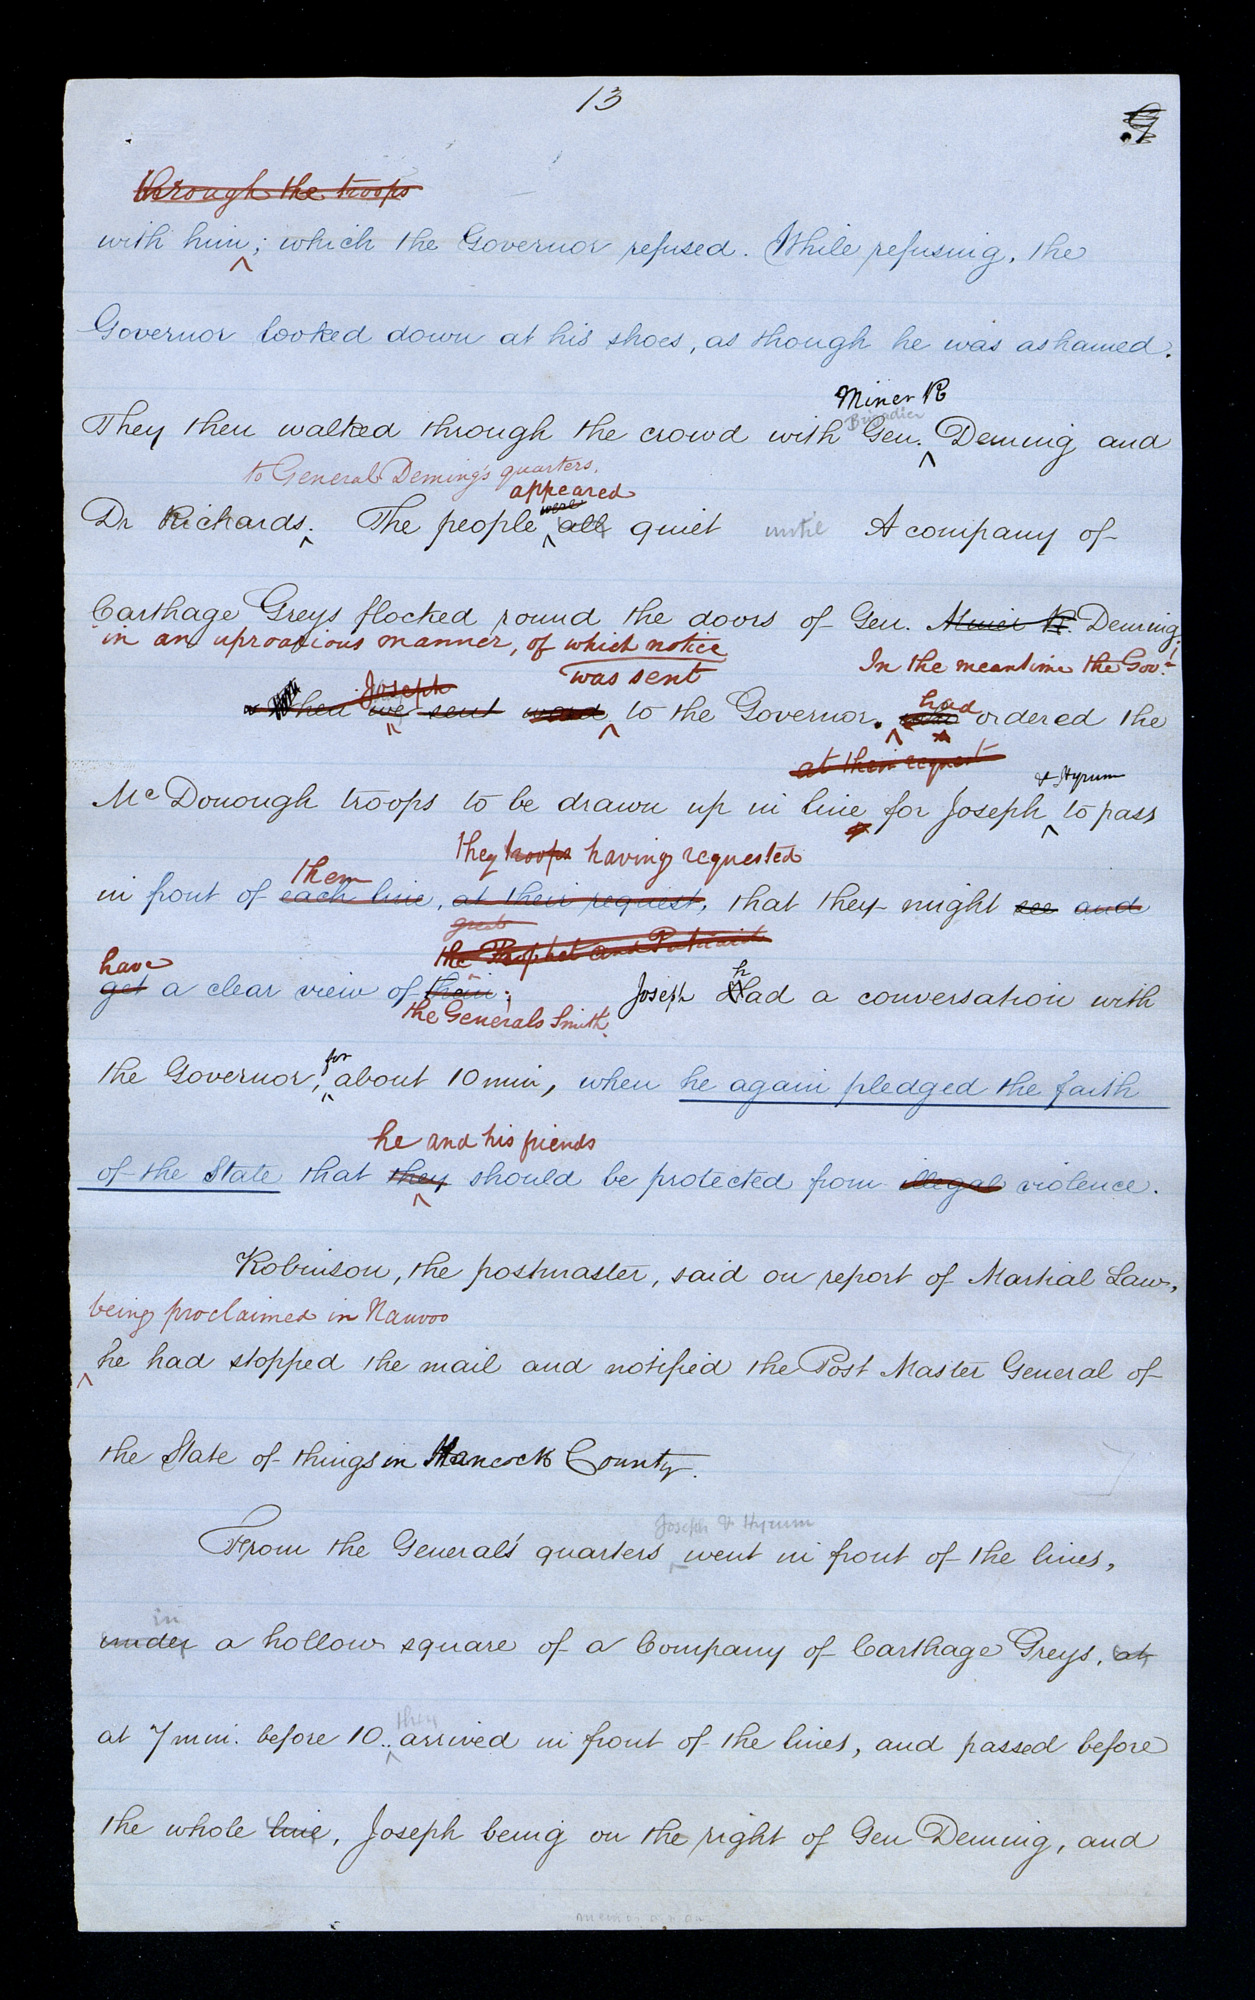 13
9
through the troops
with him; which the Governor refused. While refusing, the
Governor looked down at his shoes, as though he was ashamed.
Miner R
Brigadier
They then walked through the crowd with Gen. Deming and
to General Deming's quarters.
appeared
were
Dr Richards. The people all quiet until A company of
Carthage Greys flocked round the doors of Gen. Miner R. Deming,
in an uproarious manner, of which notice
was sent
In the meantime the Gov.r
Joseph
had
when we sent word to the Governor. who ordered the
at their request
& Hyrum
McDonough troops to be drawn up in line for Joseph to pass
they troops having requested
them
in front of each line, at their request, that they might see and
great
the Prophet and Patriarch
have
get a clear view of them; Joseph had a conversation with
the Generals Smith.
for
the Governor, about 10 min, when he again pledged the faith
he and his friends
of the State that they should be protected from illegal violence.
Robinson, the postmaster, said on report of Martial Law,
being proclaimed in Nauvoo
he had stopped the mail and notified the Post Master General of
the State of things in Hancock County.
Joseph & Hyrum
From the General's quarters went in front of the lines,
in
under a hollow square of a Company of Carthage Greys, at
they
at 7 min. before 10. arrived in front of the lines, and passed before
the whole line, Joseph being on the right of Gen Deming, and